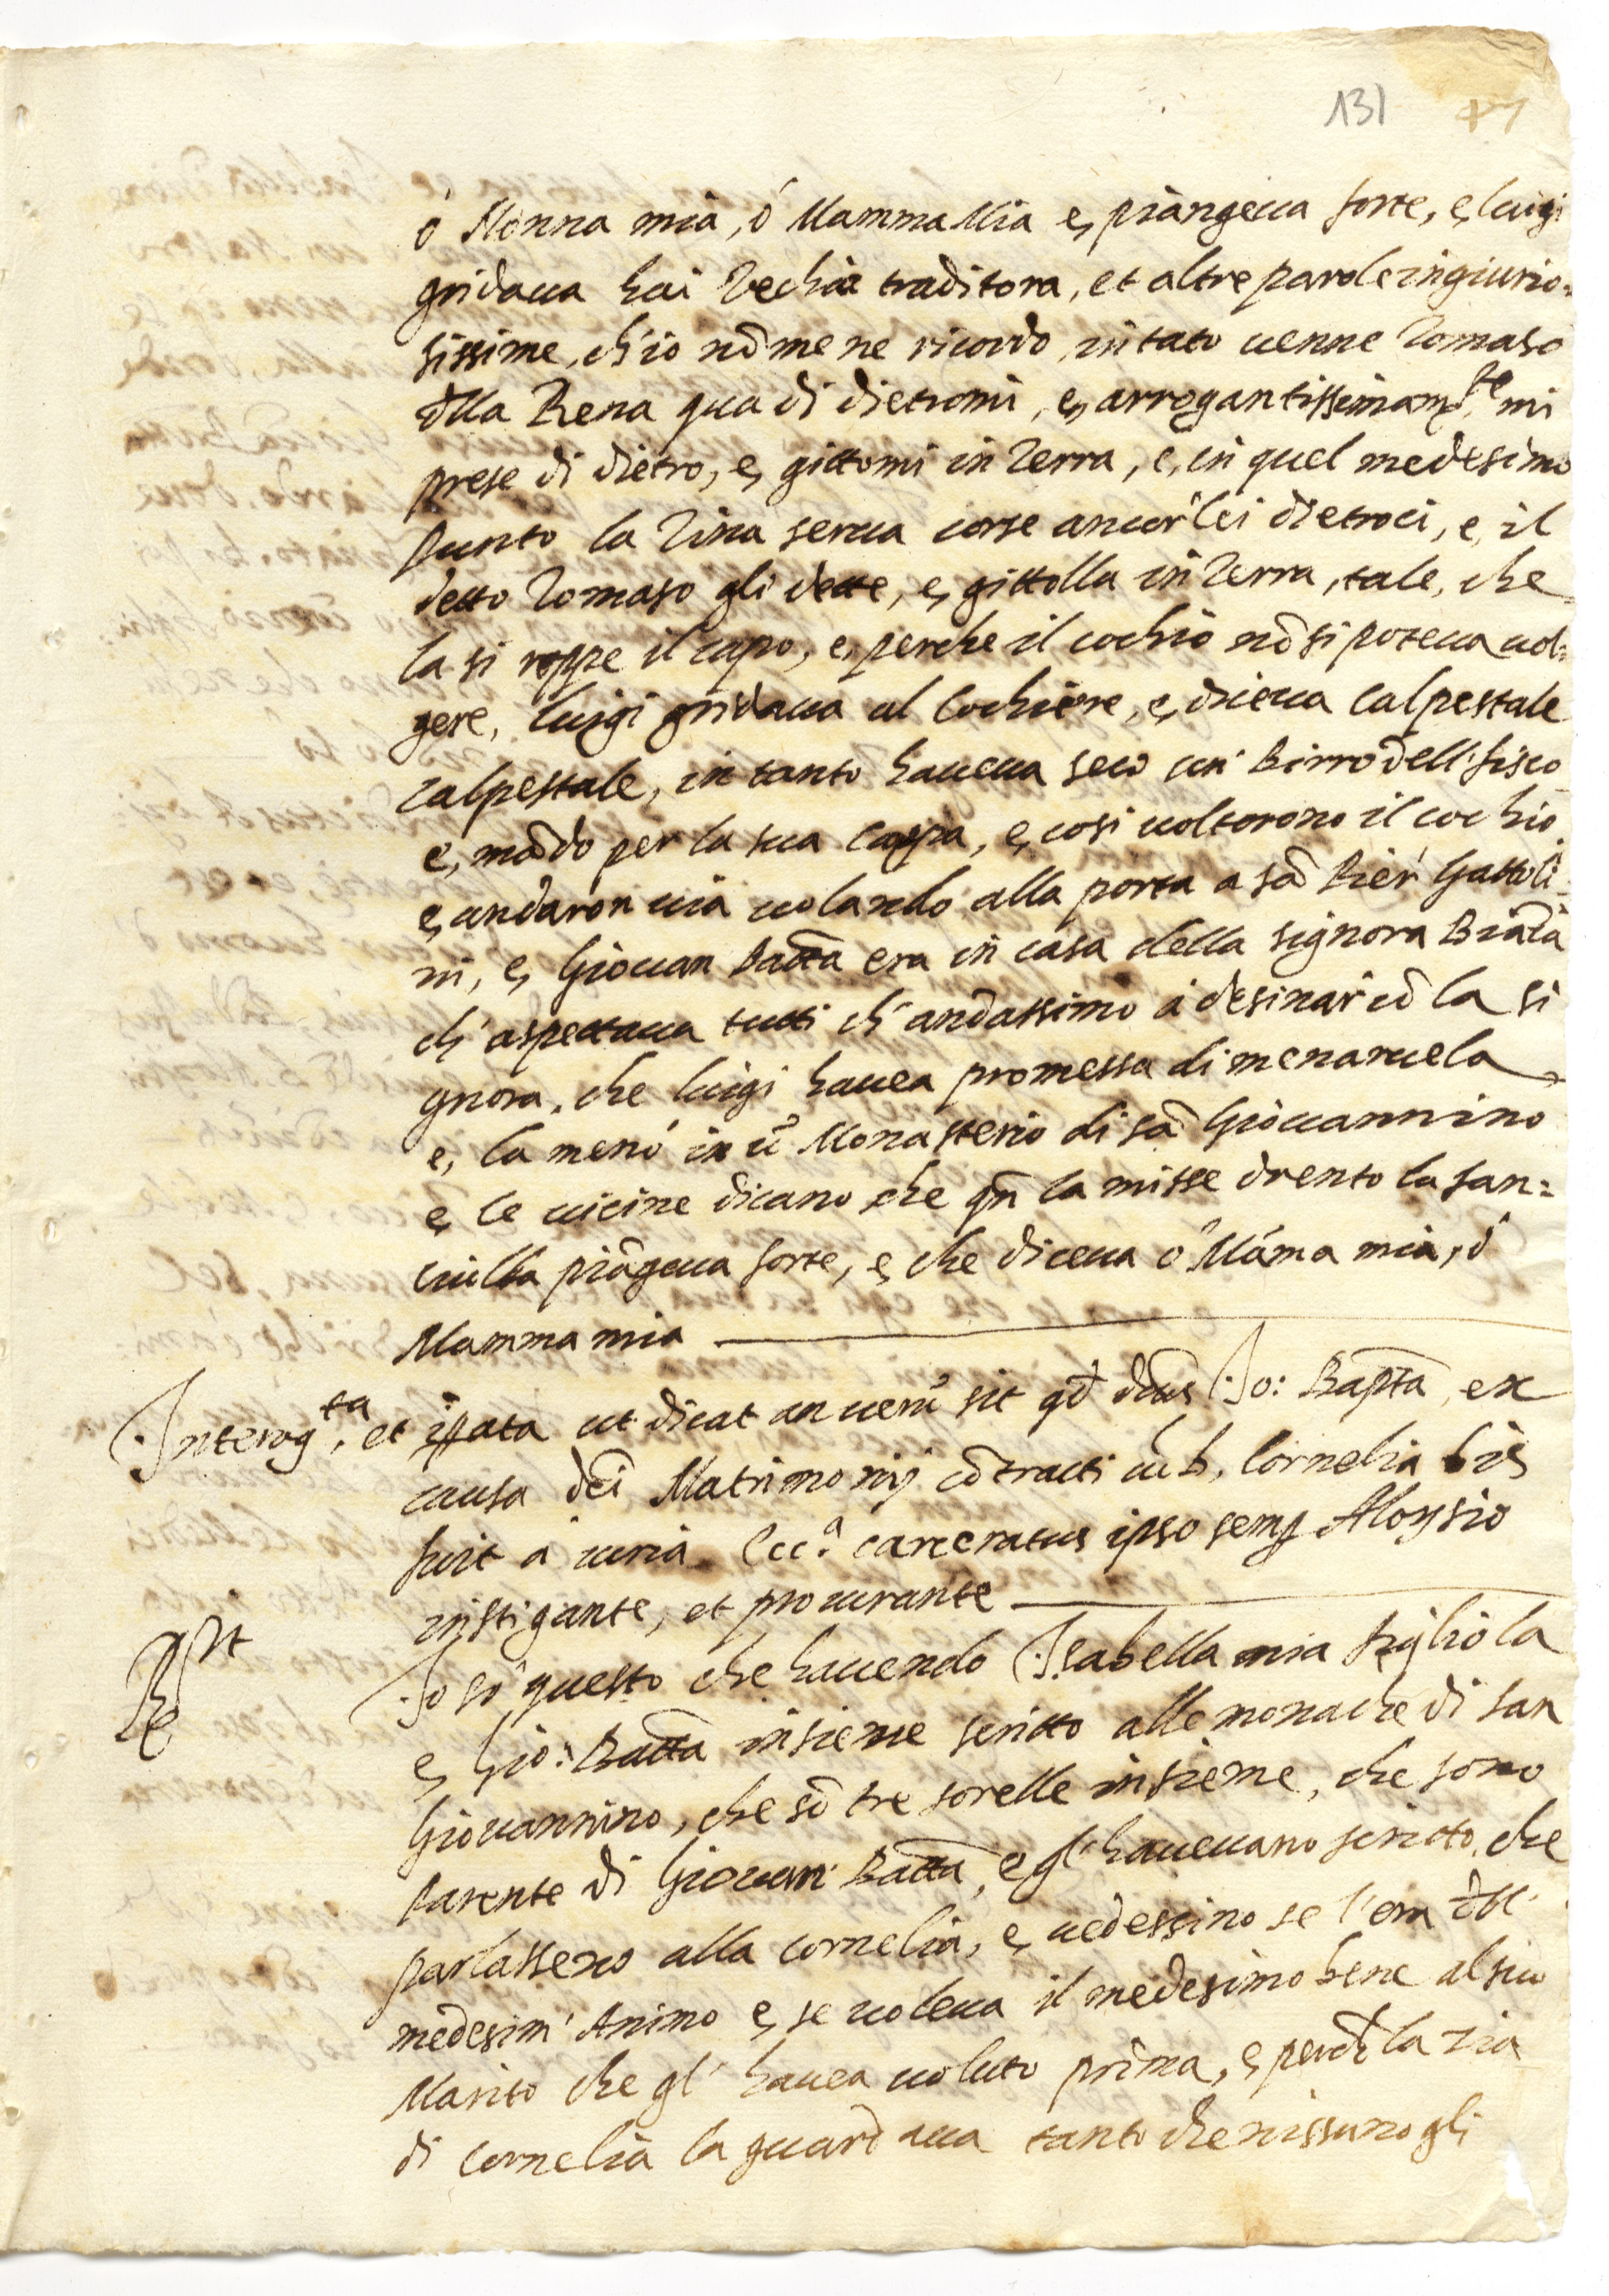 131
ó Nonna mia, ó Mamma Mia e, piangeua forte, e, luigi
gridaua hai Vechia traditora, et altre parole ingiurio=
sissime, ch'io nō me ne ricordo, in tato uenne Tomaso
dlla Rena qua di dietromi, e, arrogantissimamte mi
prese di dietro, e, gittomi in terra, e, in quel medesimo
punto la Tina serua corse ancor'lei dietroci, e, il
detto Tomaso gli dette, e, gittolla in terra, tale, che
la si roppe il capo, e, perche il cochio nō si poteua uol=
gere, luigi gridaua al Cochiere, e, diceua calpestale
calpestale, in tanto haueua seco un' Birro dell' fisco
e, mādo per la sua cappa, e, cosi uoltorono il cochio
e, andaron uia uolando alla porta a sā Pier' Gattoli
ni, e, Giouan Batta era in casa della signora Biāca
ch' aspettaua tutti ch' andassimo á desinar' cō la si
gnora, che luigi hauea promessa di menaruela
e, la menó in ū Monasterio di sā Giouannino
e, le uicine dicano che qn̄ la misse drento la fan=
ciulla piāgeua forte, e, che diceua ó Māma mia, ó
Mamma mia
Interogta, et ip̄ata ut dicat an uerū sit qd̄ dc̄us Jo: Bapta, ex
causa dc̄i Matrimonij cōtracti cū d. Cornelia bis
fuit á curia Ecc.a carceratus ipso semp Aloysio
instigante, et procurante
Rt
Io só questo che hauendo Isabella mia figliola
e, Gio: Batta insieme scritto alle monache di san
Giouannino, che sō tre sorelle insieme, che sono
parente di Giouan' Batta, e gl' haueuano scritto, che
parlassero alla cornelia, e, uedessino se l'era dll'
medesim' Animo e, se uoleua il medesimo bene al suo
Marito che gl' hauea uoluto prima, e, perche la zia
di cornelia la guardaua tanto che nissuno gli